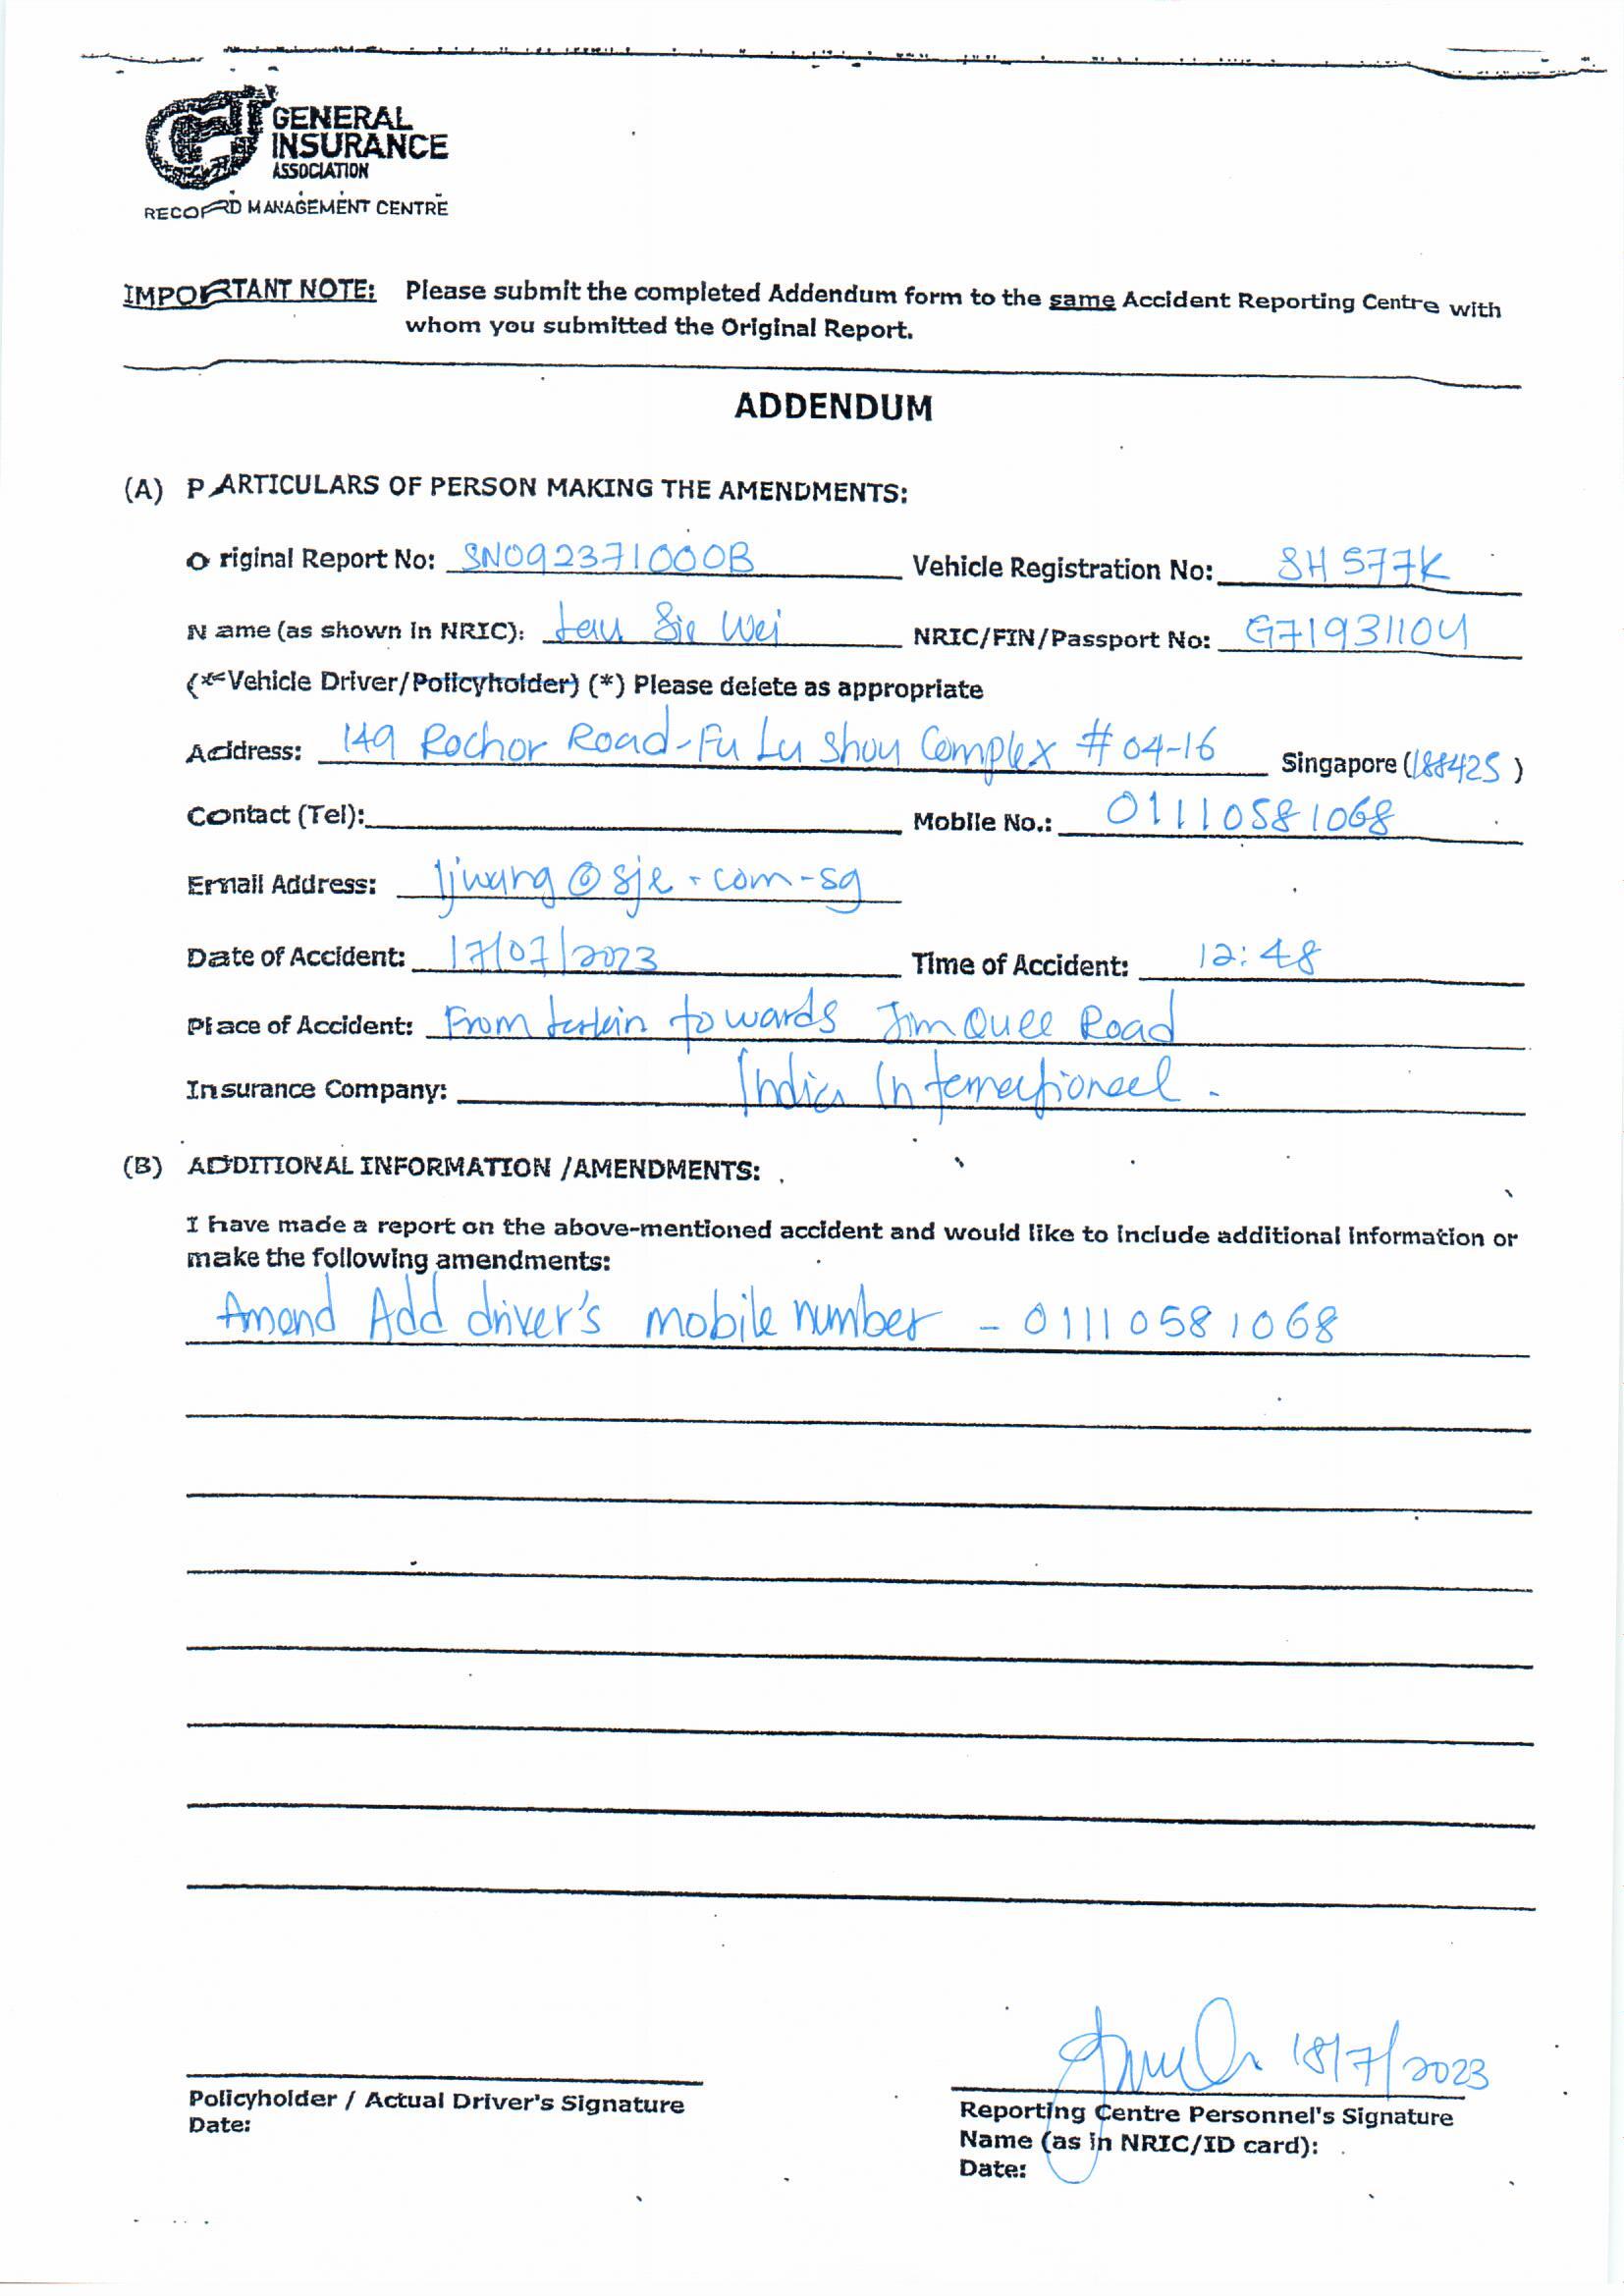 GENERAL
INSURANCE
ASSOCIATION
RECORD MANAGEMENT CENTRE
IMPORTANT NOTE: Please submit the completed Addendum form to the same Accident Reporting Centre with
whom you submitted the Original Report.
ADDENDUM
(A) PARTICULARS OF PERSON MAKING THE AMENDMENTS:
Original Report No: SN092371000B Vehicle Registration No: SH 577K
Name (as shown in NRIC): Lau Sie Wei NRIC/FIN/Passport No: G7193110U
(*Vehicle Driver/Policyholder) (*) Please delete as appropriate
Address: 149 Rochor Road-Fu Lu Shou Complex #04-16 Singapore (188425)
Contact (Tel): Mobile No.: 01110581068
Email Address: ljwang@sje.com.sg
Date of Accident: 17/07/2023 Time of Accident: 12:48
Place of Accident: From towards Jim Quee Road
Insurance Company: India International.
(B) ADDITIONAL INFORMATION /AMENDMENTS:
I have made a report on the above-mentioned accident and would like to include additional information or
make the following amendments:
Amend Add driver's mobile number - 01110581068
Policyholder / Actual Driver's Signature
Date:
18/7/2023
Reporting Centre Personnel's Signature
Name (as in NRIC/ID card):
Date: